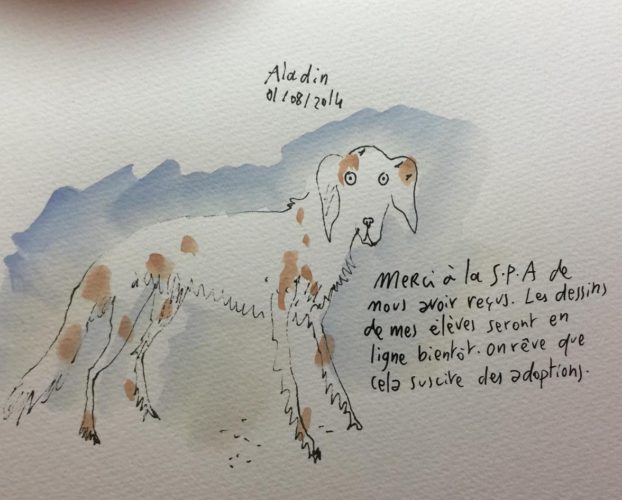 Aladin
01/08/2014
Merci à la S.P.A de
nous avoir reçus. Les dessins
de mes élèves seront en
ligne bientôt. On rêve que
cela suscite des adoptions.